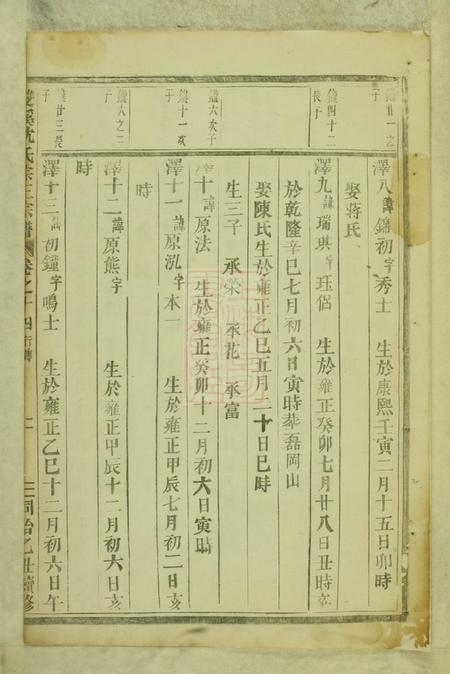 鐩廿一之
子
澤八諱錦初字秀士 生於康熙壬寅二月十五日卯時
娶蔣氏
鐩四十二
長子
澤九諱瑞琪字珏侶 生於雍正癸卯七月廿八日丑時卒
於乾隆辛巳七月初六日寅時葬磊岡山
娶陳氏生於雍正乙巳五月二十日巳時
生三子 承榮 承花 承富
鐩六次子
澤十諱原法 生於雍正癸卯十二月初六日寅時
鐩十一次
子
澤十一諱原泓字本一 生於雍正甲辰七月初二日亥
時
鐩八之二
子
澤十二諱原熊字 生於雍正甲辰十二月初六日亥
時
鐩廿三長
子
澤十三諱初鐘字鳴士 生於雍正乙巳十二月初六日午
沈氏三宗譜 卷之十四 行傳 二 同治乙丑續修